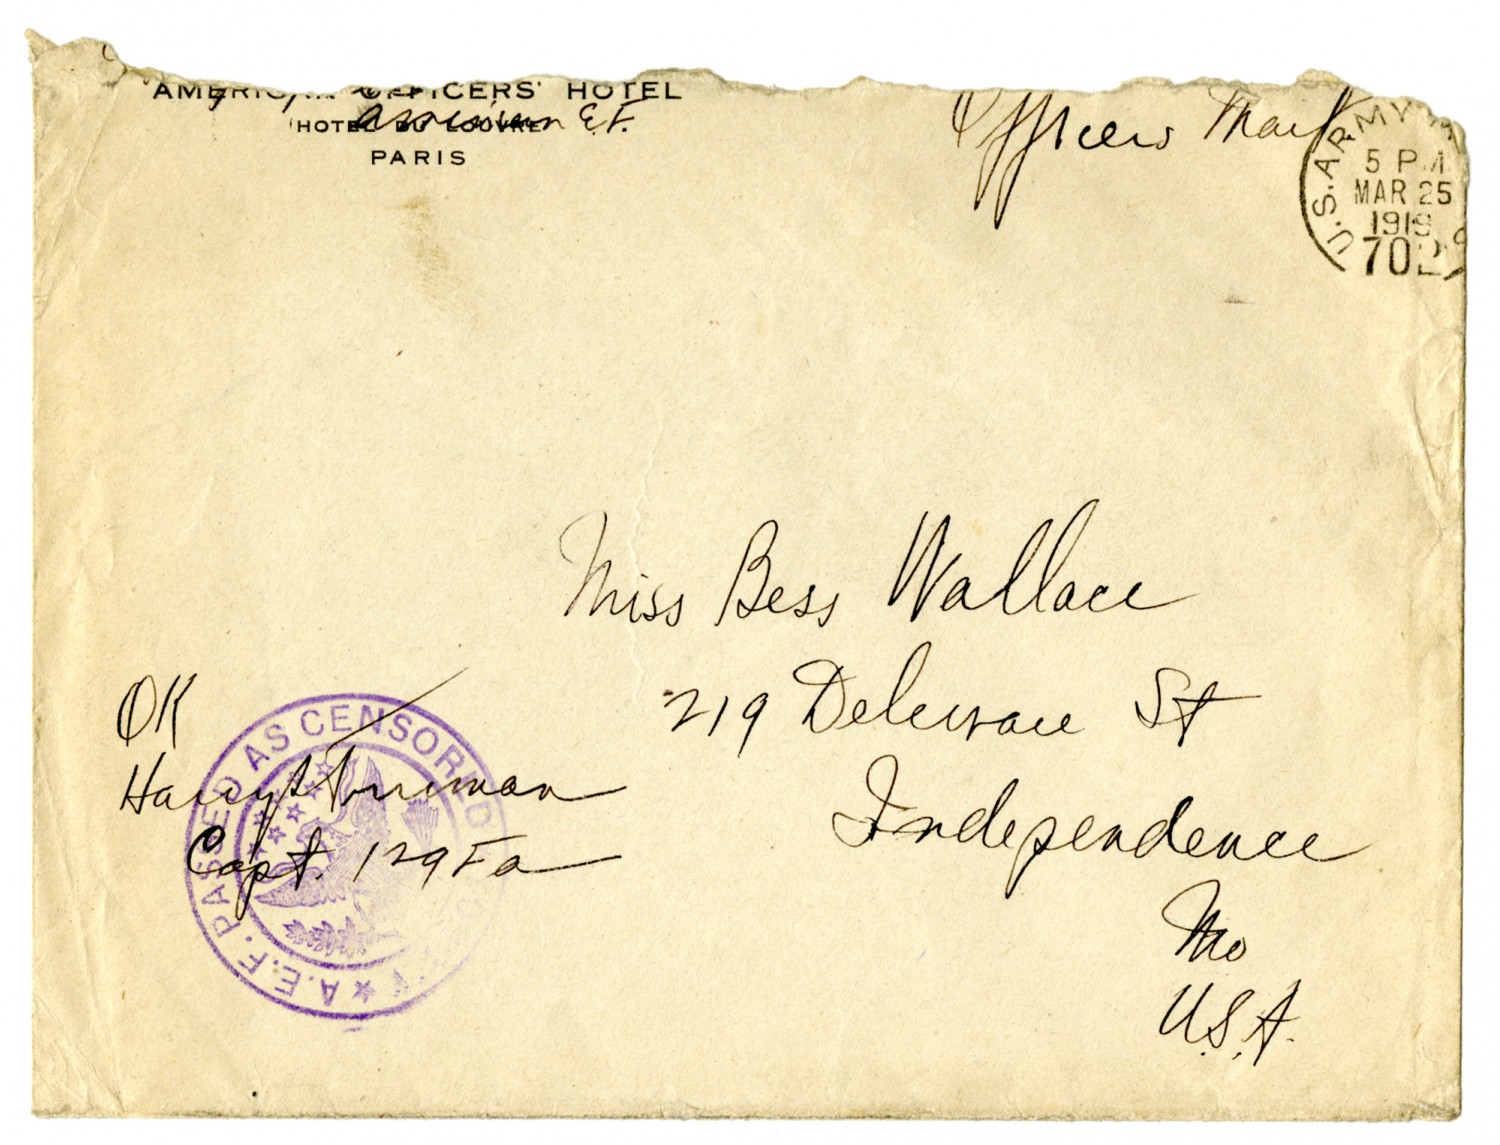 AMERICAN OFFICERS' HOTEL
HOTEL DU LOUVRE
E.F.
PARIS
Officers Mail
U.S. ARMY
5 PM
MAR 25
1919
702
Miss Bess Wallace
219 Delaware St
Independence
Mo
U.S.A.
OK
Harry S Truman
Capt. 129 Fa
A.E.F. PASSED AS CENSORED